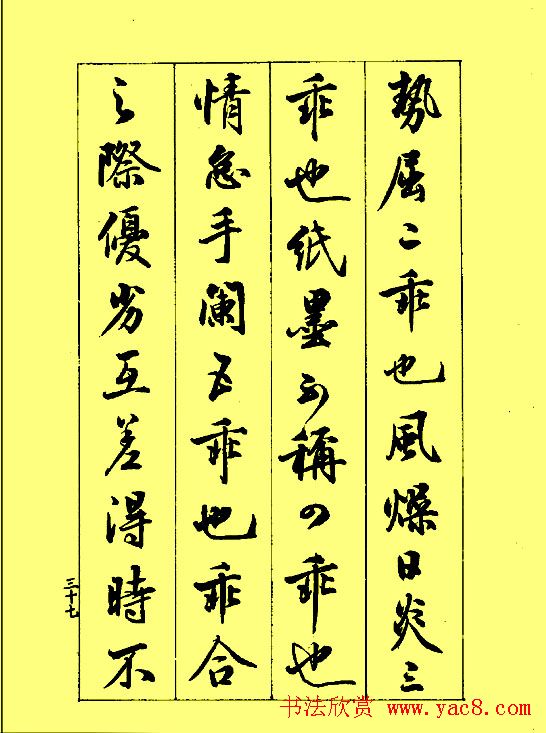 勢屈二乖也風燥日炎三
乖也紙墨不稱四乖也
情怠手闌五乖也乖合
之際優劣互差得時不
三十七
书法欣赏 www.yac8.com